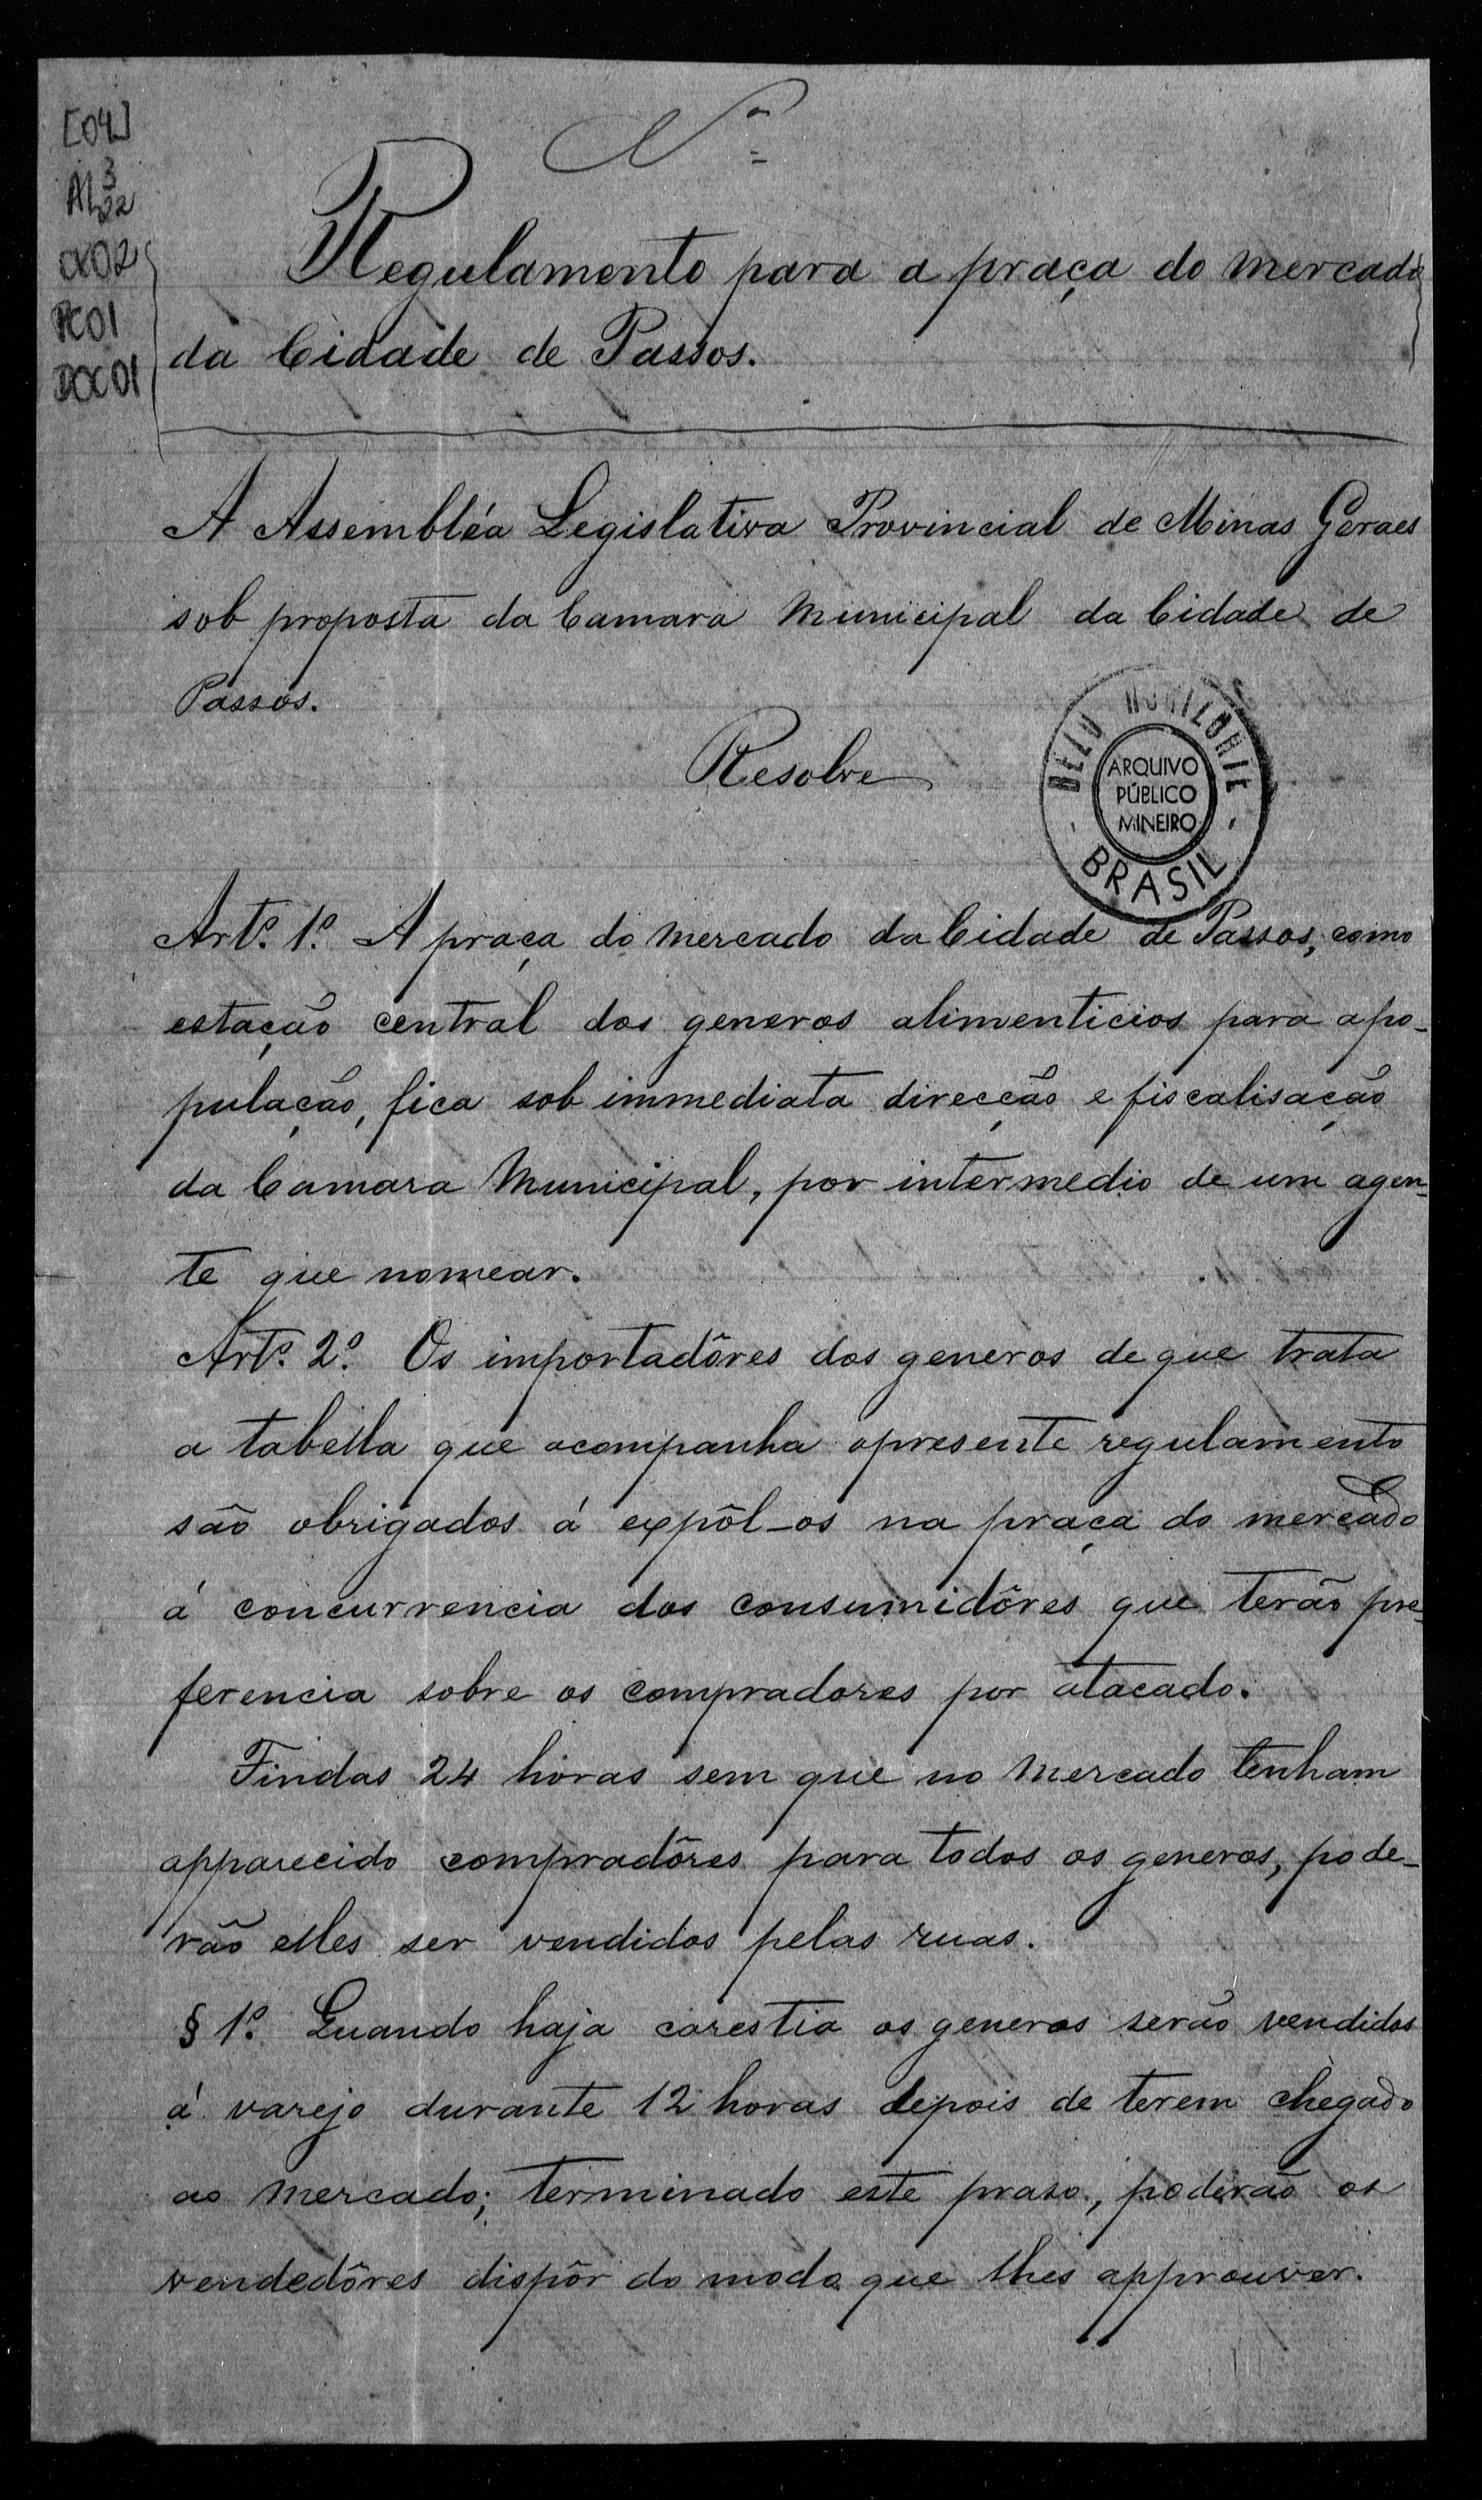 Nº
[04]
AL
3
22
CX02
PC01
DOC01
Regulamento para a praça do mercado
da Cidade de Passos.
A Assembléa Legislativa Provincial de Minas Geraes
sob proposta da Camara Municipal da Cidade de
Passos.
Resolve
BELO HORIZONTE
ARQUIVO
PÚBLICO
MINEIRO
- BRASIL -
Artº. 1º. A praça do mercado da Cidade de Passos, como
estação central dos generos alimenticios para a po-
pulação, fica sob immediata direcção e fiscalisação
da Camara Municipal, por intermedio de um agen-
te que nomear.
Artº. 2º. Os importadôres dos generos de que trata
a tabella que acompanha o presente regulamento
são obrigados á expôl-os na praça do mercado
á concurrencia dos consumidôres que terão pre-
ferencia sobre os compradores por atacado.
Findas 24 horas sem que no mercado tenham
apparecido compradôres para todos os generos, pode-
rão elles ser vendidos pelas ruas.
§ 1º. Quando haja carestia os generos serão vendidos
á varejo durante 12 horas depois de terem chegado
ao mercado; terminado este praso, poderão os
vendedôres dispôr do modo que lhes approuver.